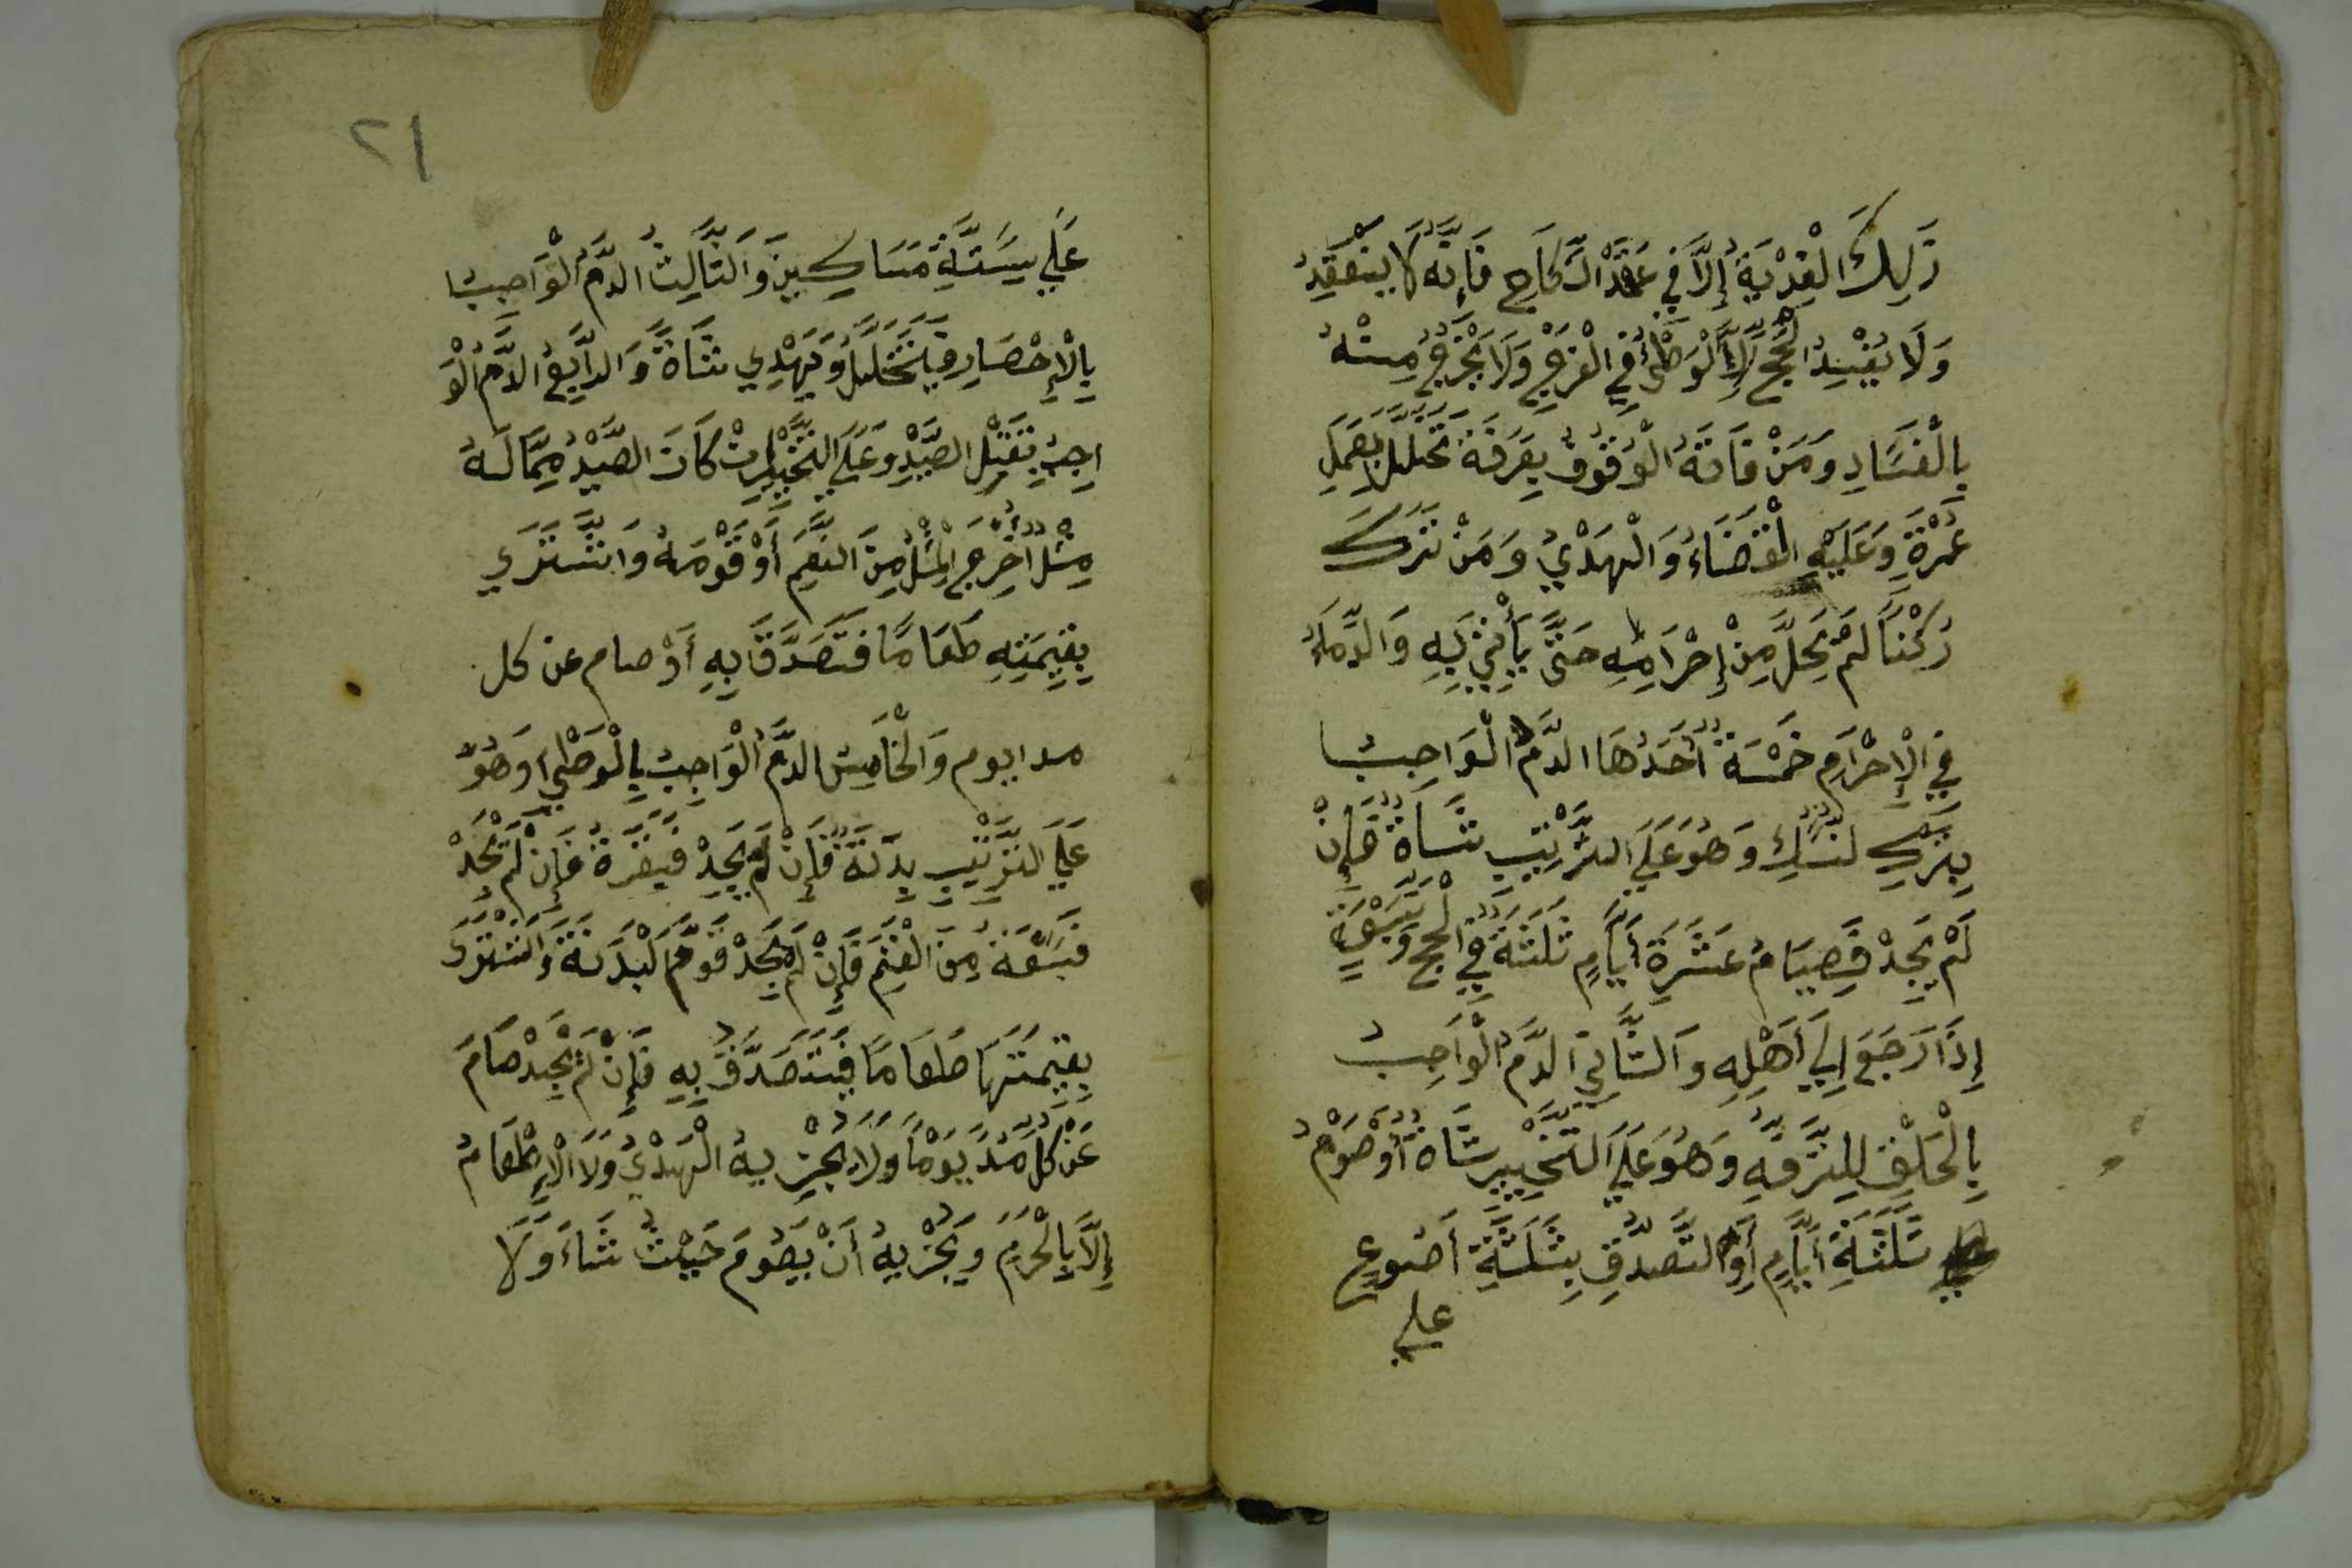 ذَلِكَ الْفِدْيَةُ إِلَّا فِي عَقْدِ النِّكَاحِ فَإِنَّهُ لَا يَنْعَقِدُ
وَلَا يُفْسِدُ الْحَجَّ إِلَّا الْوَطْئُ فِي الْفَرْجِ وَلَا يَخْرُجُ مِنْهُ
بِالْفَسَادِ وَمَنْ فَاتَهُ الْوُقُوفُ بِعَرَفَةَ تَحَلَّلَ بِعَمَلِ
عُمْرَةٍ وَعَلَيْهِ الْقَضَاءُ وَالْهَدْيُ وَمَنْ تَرَكَ
رُكْنًا لَمْ يَحِلَّ مِنْ إِحْرَامِهِ حَتَّى يَأْتِيَ بِهِ وَالدِّمَاءُ
فِي الْإِحْرَامِ خَمْسَةٌ أَحَدُهَا الدَّمُ الْوَاجِبُ
بِتَرْكِ نُسُكٍ وَهُوَ عَلَى التَّرْتِيبِ شَاةٌ فَإِنْ
لَمْ يَجِدْ فَصِيَامُ عَشَرَةِ أَيَّامٍ ثَلَثَةٌ فِي الْحَجِّ وَسَبْعَةٍ
إِذَا رَجَعَ إِلَي أَهْلِهِ وَالثَّانِي الدَّمُ الْوَاجِبُ
بِالْحَلْقِ لِلتَّرَفُّهِ وَهُوَ عَلَي التَّخْيِيرِ شَاةٌ أَوْ صَوْمُ
ثَلَثَةِ أَيَّامٍ أَوِ التَّصَدُّقِ بِثَلَثَةِ أَصُوعٍ
علي
٢١
عَلَي سِتَّةِ مَسَاكِينَ وَالثَّالِثُ الدَّمُ الْوَاجِبُ
بِالْإِحْصَارِ فَيَتَحَلَّلُ وَيُهْدِي شَاةً وَالرَّابِعُ الدَّمُ الْوَ
اجِبُ بِقَتْلِ الصَّيْدِ وَعَلَي التَّخْيِيرِ إِنْ كَانَ الصَّيْدُ مِمَّا لَهُ
مِثْلٌ أَخْرَجَ الْمِثْلَ مِنَ النَّعَمِ أَوْ قَوَّمَهُ وَاشْتَرَي
بِقِيمَتِهِ طَعَامًا فَتَصَدَّقَ بِهِ أَوْ صام عن كل
مد ايوم وَالْخَامِسُ الدَّمُ الْوَاجِبُ بِالْوَطْيِ وَهُوَ
عَلَي التَّرْتِيبِ بِدَنَةٌ فَإِنْ لَمْ يَجِدْ فَبَقَرَةٌ فَإِنْ لَمْ يَجِدْ
فَسَبْعَةٌ مِنَ الْغَنَمِ فَإِنْ لَمْ يَجِدْ قَوَّمَ الْبَدَنَةَ وَاشْتَرَى
بِقِيمَتِهَا طَعَامًا فَيَتَصَدَّقُ بِهِ فَإِنْ لَمْ يَجِدْ صَامَ
عَنْ كُلِّ مُدٍّ يَوْمًا وَلَا يُجْزِيهُ الْهَدْيُ وَلَا الْإِطْعَامُ
إِلَّا بِالْحَرَمِ وَيُجْزِيهُ أَنْ يَصُومَ حَيْثُ شَاءَ وَلَا